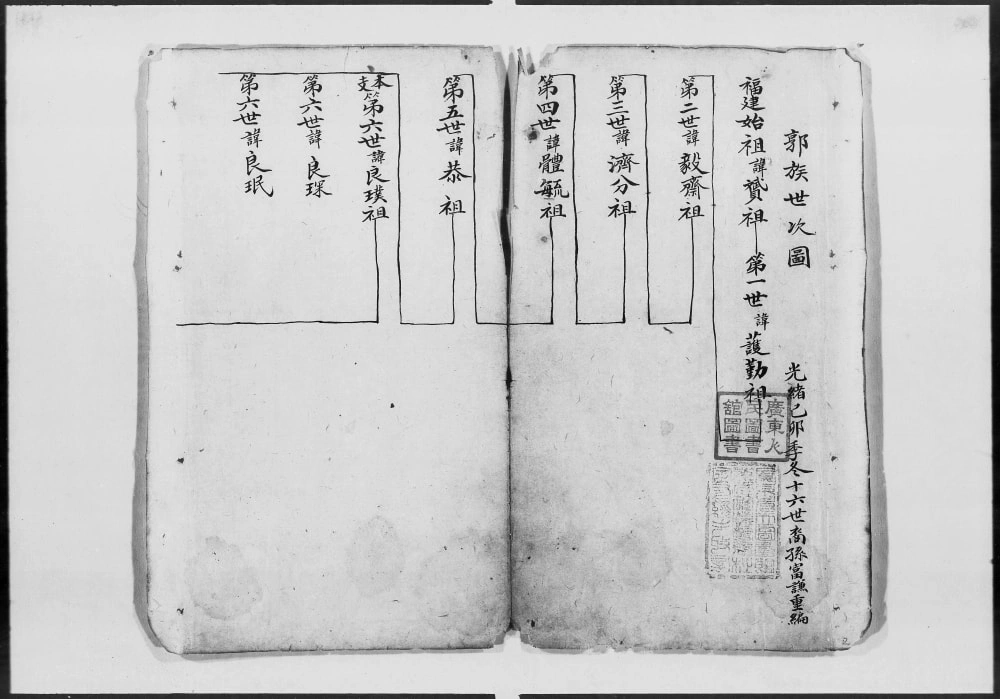 郭族世次圖
光緒己卯季冬十六世裔孫富謙重編
福建始祖諱贇祖
第一世諱護勤祖
第二世諱毅齋祖
第三世諱濟分祖
第四世諱體毓祖
第五世諱恭祖
本支第六世諱良璞祖
第六世諱良琛
第六世諱良珉
廣東人
民圖書
舘圖書
2